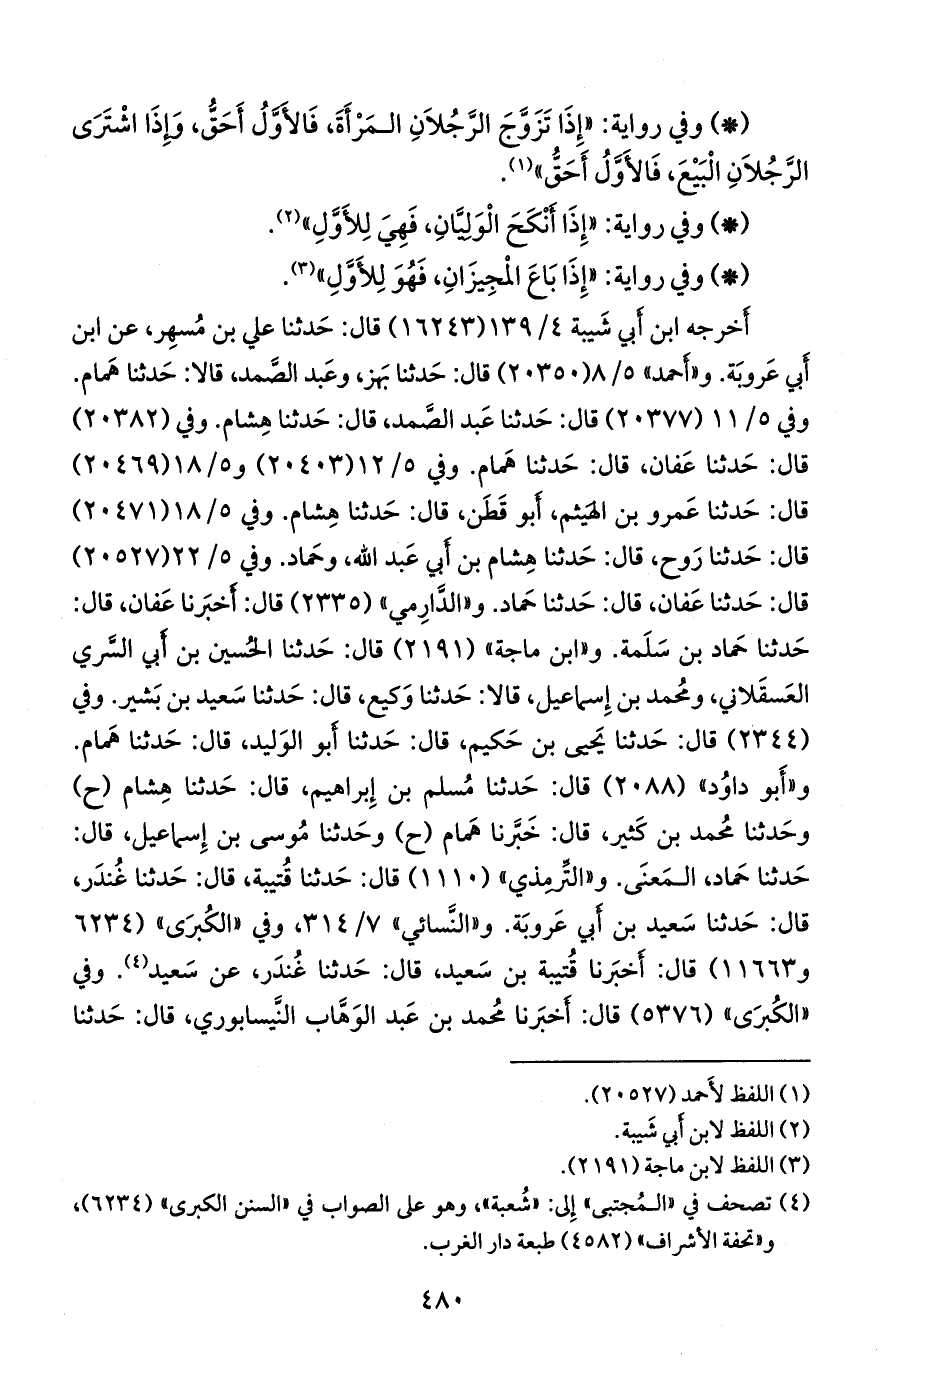 (*) وفي رواية: «إِذَا تَزَوَّجَ الرَّجُلاَنِ الـمَرْأَةَ، فَالأَوَّلُ أَحَقُّ، وَإِذَا اشْتَرَى
الرَّجُلاَنِ الْبَيْعَ، فَالأَوَّلُ أَحَقُّ»(١).
(*) وفي رواية: «إِذَا أَنْكَحَ الْوَلِيَّانِ، فَهِيَ لِلأَوَّلِ»(٢).
(*) وفي رواية: «إِذَا بَاعَ الْمُجِيزَانِ، فَهُوَ لِلأَوَّلِ»(٣).
أَخرجه ابن أَبي شَيبة ٤/ ١٣٩(١٦٢٤٣) قال: حَدثنا علي بن مُسهِر، عن ابن
أَبي عَروبَة. و«أَحمد» ٥/ ٨(٢٠٣٥٠) قال: حَدثنا بَهز، وعَبد الصَّمد، قالا: حَدثنا هَمام.
وفي ٥/ ١١ (٢٠٣٧٧) قال: حَدثنا عَبد الصَّمد، قال: حَدثنا هِشام. وفي (٢٠٣٨٢)
قال: حَدثنا عَفان، قال: حَدثنا هَمام. وفي ٥/ ١٢(٢٠٤٠٣) و٥/ ١٨(٢٠٤٦٩)
قال: حَدثنا عَمرو بن الهَيثم، أَبو قَطَن، قال: حَدثنا هِشام. وفي ٥/ ١٨(٢٠٤٧١)
قال: حَدثنا رَوح، قال: حَدثنا هِشام بن أَبي عَبد الله، وحَماد. وفي ٥/ ٢٢(٢٠٥٢٧)
قال: حَدثنا عَفان، قال: حَدثنا حَماد. و«الدَّارِمي» (٢٣٣٥) قال: أَخبَرنا عَفان، قال:
حَدثنا حَماد بن سَلَمة. و«ابن ماجة» (٢١٩١) قال: حَدثنا الحُسين بن أَبي السَّري
العَسقَلاني، ومُحمد بن إِسماعيل، قالا: حَدثنا وَكيع، قال: حَدثنا سَعيد بن بَشير. وفي
(٢٣٤٤) قال: حَدثنا يَحيى بن حَكيم، قال: حَدثنا أَبو الوَليد، قال: حَدثنا هَمام.
و«أَبو داوُد» (٢٠٨٨) قال: حَدثنا مُسلم بن إِبراهيم، قال: حَدثنا هِشام (ح)
وحَدثنا مُحمد بن كَثير، قال: خَبَّرنا هَمام (ح) وحَدثنا مُوسى بن إِسماعيل، قال:
حَدثنا حَماد، الـمَعنَى. و«التِّرمِذي» (١١١٠) قال: حَدثنا قُتيبة، قال: حَدثنا غُندَر،
قال: حَدثنا سَعيد بن أَبي عَروبَة. و«النَّسائي» ٧/ ٣١٤، وفي «الكُبرَى» (٦٢٣٤
و١١٦٦٣) قال: أَخبَرنا قُتيبة بن سَعيد، قال: حَدثنا غُندَر، عن سَعيد(٤). وفي
«الكُبرَى» (٥٣٧٦) قال: أَخبَرنا مُحمد بن عَبد الوَهَّاب النَّيسابوري، قال: حَدثنا
(١) اللفظ لأَحمد (٢٠٥٢٧).
(٢) اللفظ لابن أَبي شَيبة.
(٣) اللفظ لابن ماجة (٢١٩١).
(٤) تصحف في «الـمُجتبى» إِلى: «شُعبة»، وهو على الصواب في «السنن الكبرى» (٦٢٣٤)،
و«تحفة الأشراف» (٤٥٨٢) طبعة دار الغرب.
٤٨٠